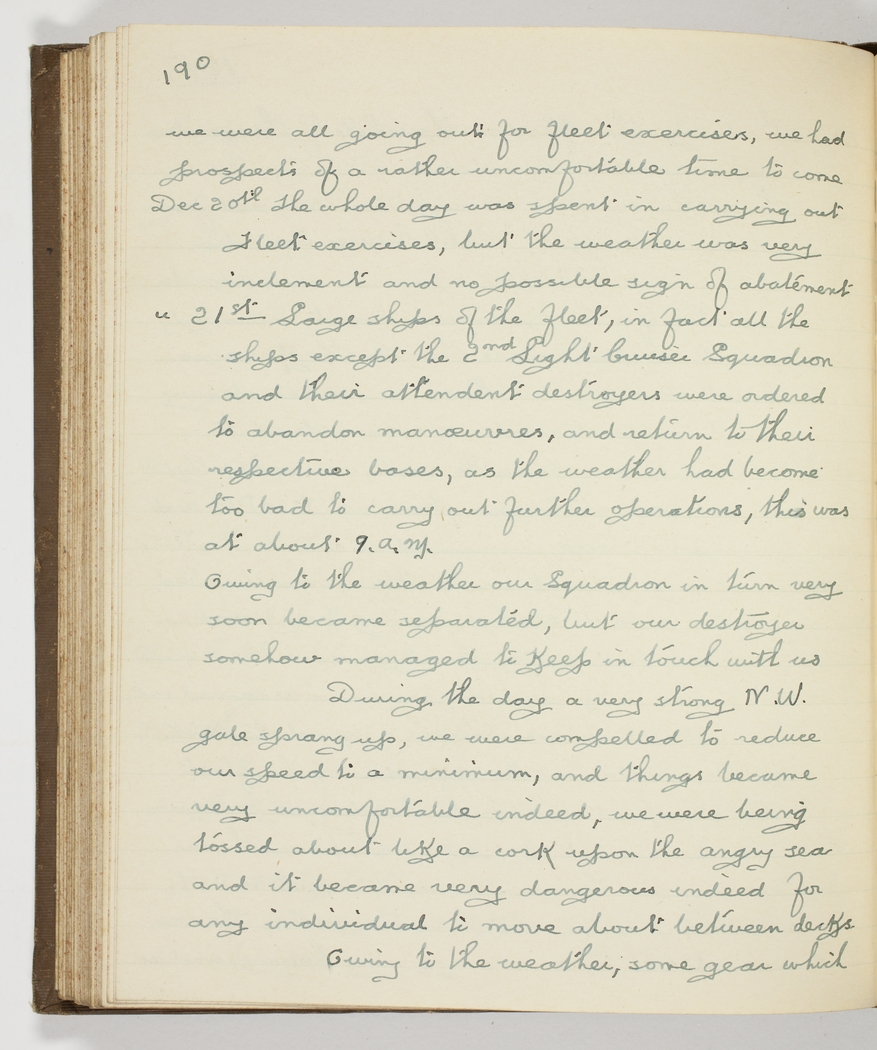 190
we were all going out for fleet exercises, we had
prospects of a rather uncomfortable time to come
Dec 20th The whole day was spent in carrying out
Fleet exercises, but the weather was very
inclement and no possible sign of abatement
" 21st Large ships of the fleet, in fact all the
ships except the 2nd Light Cruiser Squadron
and their attendent destroyers were ordered
to abandon manœuvres, and return to their
respective bases, as the weather had become
too bad to carry out further operations, this was
at about 9.a.m.
Owing to the weather our Squadron in turn very
soon became separated, but our destroyer
somehow managed to Keep in touch with us
During the day a very strong N.W.
gale sprang up, we were compelled to reduce
our speed to a minimum, and things became
very uncomfortable indeed, we were being
tossed about like a cork upon the angry sea
and it became very dangerous indeed for
any individual to move about between decks
Owing to the weather, some gear which